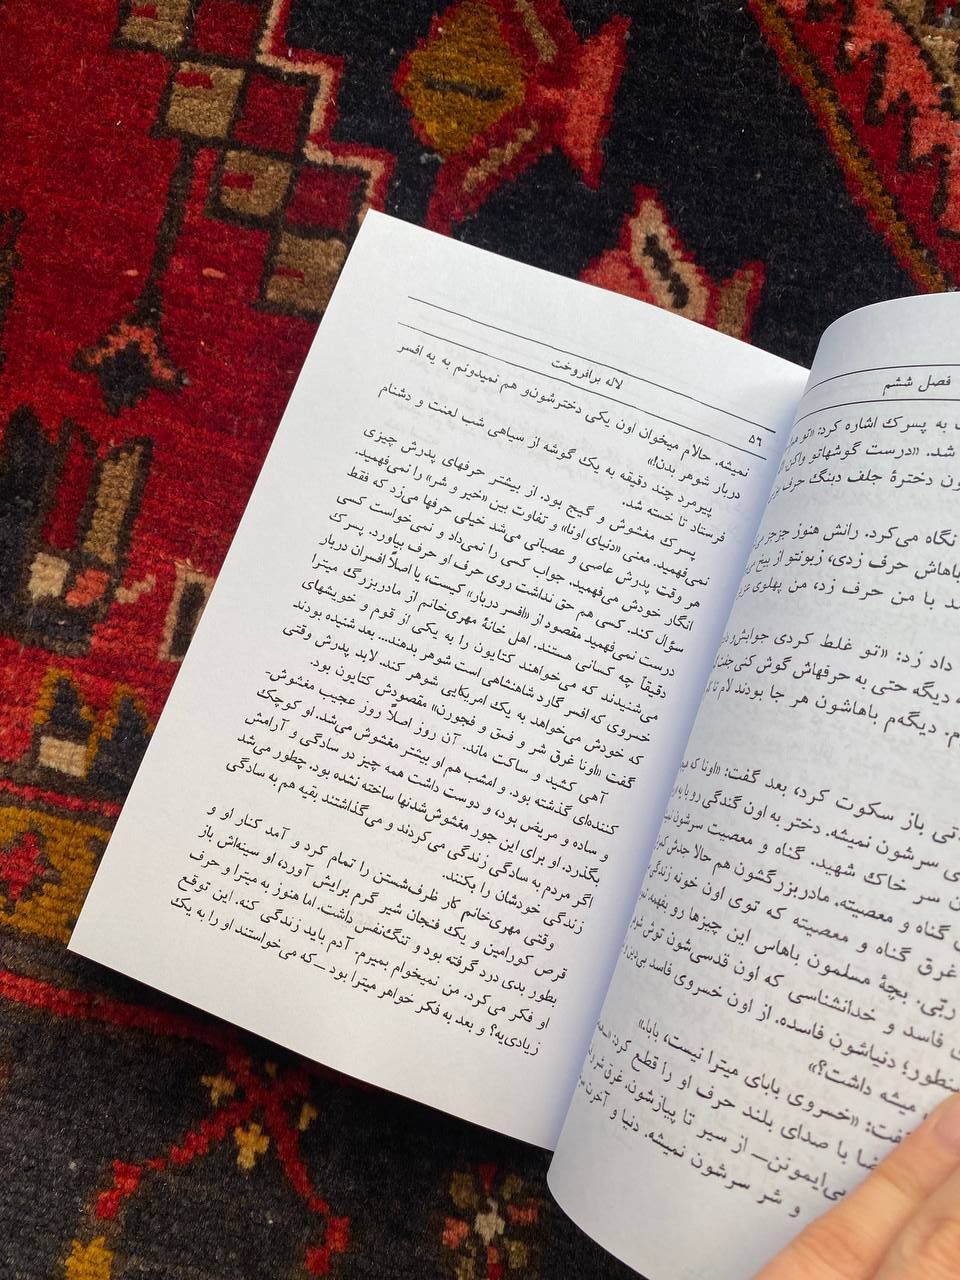 فصل ششم
به پسرک اشاره کرد: «تو
شد. «درست گوشهاتو واکن
دخترۀ جلف دبنگ حرف
نگاه می‌کرد. رانش هنوز جزجز
باهاش حرف زدی، زبونتو از بیخ
با من حرف زد، من پهلوی
داد زد: «تو غلط کردی جوابش‌و
دیگه حتی به حرفهاش گوش کنی
دیگه‌م باهاشون هر جا بودند لام تا
باز سکوت کرد، بعد گفت: «اونا که
سرشون نمیشه. دختر به اون گندگی رو با
سر خاک شهید. گناه و معصیت سرشون
گناه و معصیته. مادربزرگشون هم حالا جدش
غرق گناه و معصیته که توی اون خونه زندگی
ربّی. بچۀ مسلمون باهاس این چیزها رو بفهمه
فاسد و خدانشناسی که اون قدسی‌شون توش
دنیاشون فاسده. از اون خسروی فاسد بی‌دین
میشه داشت؟»
«خسروی بابای میترا نیست، بابا.»
با صدای بلند حرف او را قطع کرد:
بی‌ایمونن— از سیر تا پیازشون. غرق شر و
و شر سرشون نمیشه. دنیا و آخرت
۵۹ لاله برافروخت
نمیشه. حالام میخوان اون یکی دخترشون‌و هم نمیدونم به یه افسر
دربار شوهر بدن!»
پیرمرد چند دقیقه به یک گوشه از سیاهی شب لعنت و دشنام
فرستاد تا خسته شد.
پسرک مغشوش و گیج بود. از بیشتر حرفهای پدرش چیزی
نمی‌فهمید. معنی «دنیای اونا» و تفاوت بین «خیر و شر» را نمی‌فهمید.
هر وقت پدرش عاصی و عصبانی می‌شد خیلی حرفها می‌زد که فقط
انگار خودش می‌فهمید. جواب کسی را نمی‌داد و نمی‌خواست کسی
سؤال کند. کسی هم حق نداشت روی حرف او حرف بیاورد. پسرک
درست نمی‌فهمید مقصود از «افسر دربار» کیست، یا اصلاً افسران دربار
دقیقاً چه کسانی هستند. اهل خانۀ مهری‌خانم از مادربزرگ میترا
می‌شنیدند که می‌خواهند کتایون را به یکی از قوم و خویشهای
خسروی که افسر گارد شاهنشاهی است شوهر بدهند... بعد شنیده بودند
که خودش می‌خواهد به یک امریکایی شوهر کند. لابد پدرش وقتی
گفت «اونا غرق شر و فسق و فجورن» مقصودش کتایون بود.
آهی کشید و ساکت ماند. آن روز اصلاً روز عجیب مغشوش‌-
کننده‌ای گذشته بود. و امشب هم او بیشتر مغشوش می‌شد. او کوچک
و ساده و مریض بود، و دوست داشت همه چیز در سادگی و آرامش
بگذرد. او برای این جور مغشوش‌شدنها ساخته نشده بود. چطور می‌شد
اگر مردم به سادگی زندگی می‌کردند و می‌گذاشتند بقیه هم به سادگی
زندگی خودشان را بکنند.
وقتی مهری‌خانم کار ظرف‌شستن را تمام کرد و آمد کنار او و
قرص کورامین و یک فنجان شیر گرم برایش آورد، او سینه‌اش باز
بطور بدی درد گرفته بود و تنگ‌نفس داشت. اما هنوز به میترا و حرف
او فکر می‌کرد. من نمیخوام بمیرم. آدم باید زندگی کنه. این توقع
زیادی‌یه؟ و بعد به فکر خواهر میترا بود —که می خواستند او را به یک